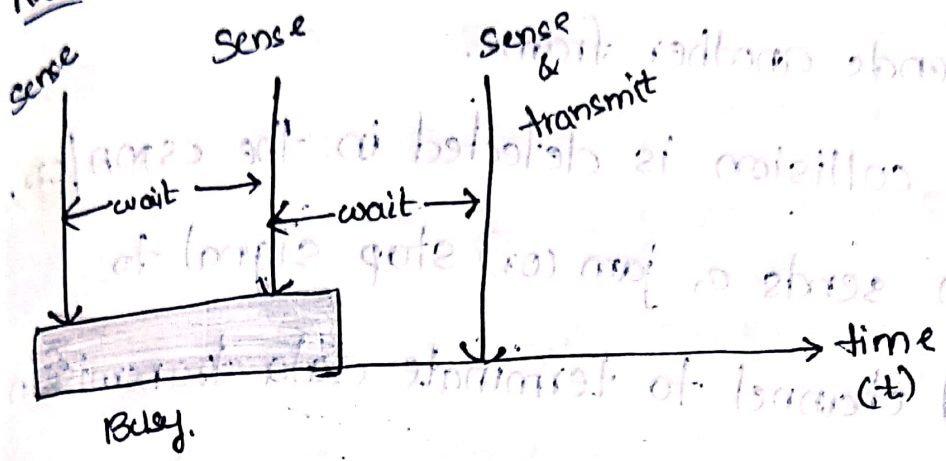 sense
Sense
Sense
&
transmit
wait
wait
time
(t)
Busy.